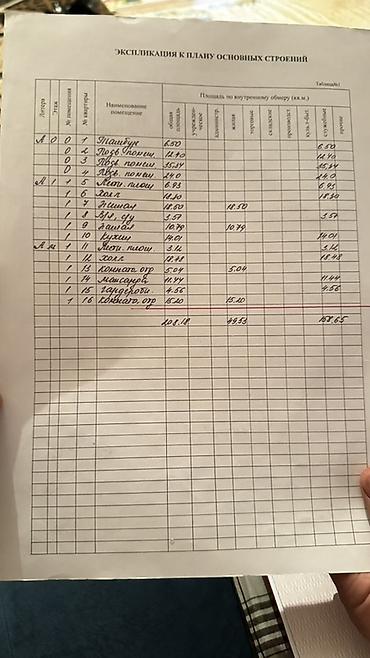 ЭКСПЛИКАЦИЯ К ПЛАНУ ОСНОВНЫХ СТРОЕНИЙ
Таблица№1
Литера Этаж № помещения № квартиры Наименование помещение Площадь по внутреннему обмеру (кв.м.)
общая площадь учрежденческое администр. жилая торговые складские производст. культ-быт. служебные прочие
А 0 0 1 Тамбур 6.50 6.50
0 2 Подв. помещ. 12.40 12.40
0 3 Подв. помещ.
0 4 Подв. помещ. 24.0 24.0
А 1 1 5 Лест. площ 6.93 6.93
1 6 Холл
1 7 Жилая 18.50 18.50
1 8 с/у 3.57 3.57
1 9 Жилая 10.79 10.79
1 10 Кухня 14.01 14.01
А м 1 11 Лест. площ 3.12 3.12
1 12 Холл 18.48 18.48
1 13 Комната отд 5.04 5.04
1 14 Мансарда 11.44 11.44
1 15 Гардероб. 4.56 4.56
1 16 Комната. отд 15.20 15.20
208.18 49.53 158.65